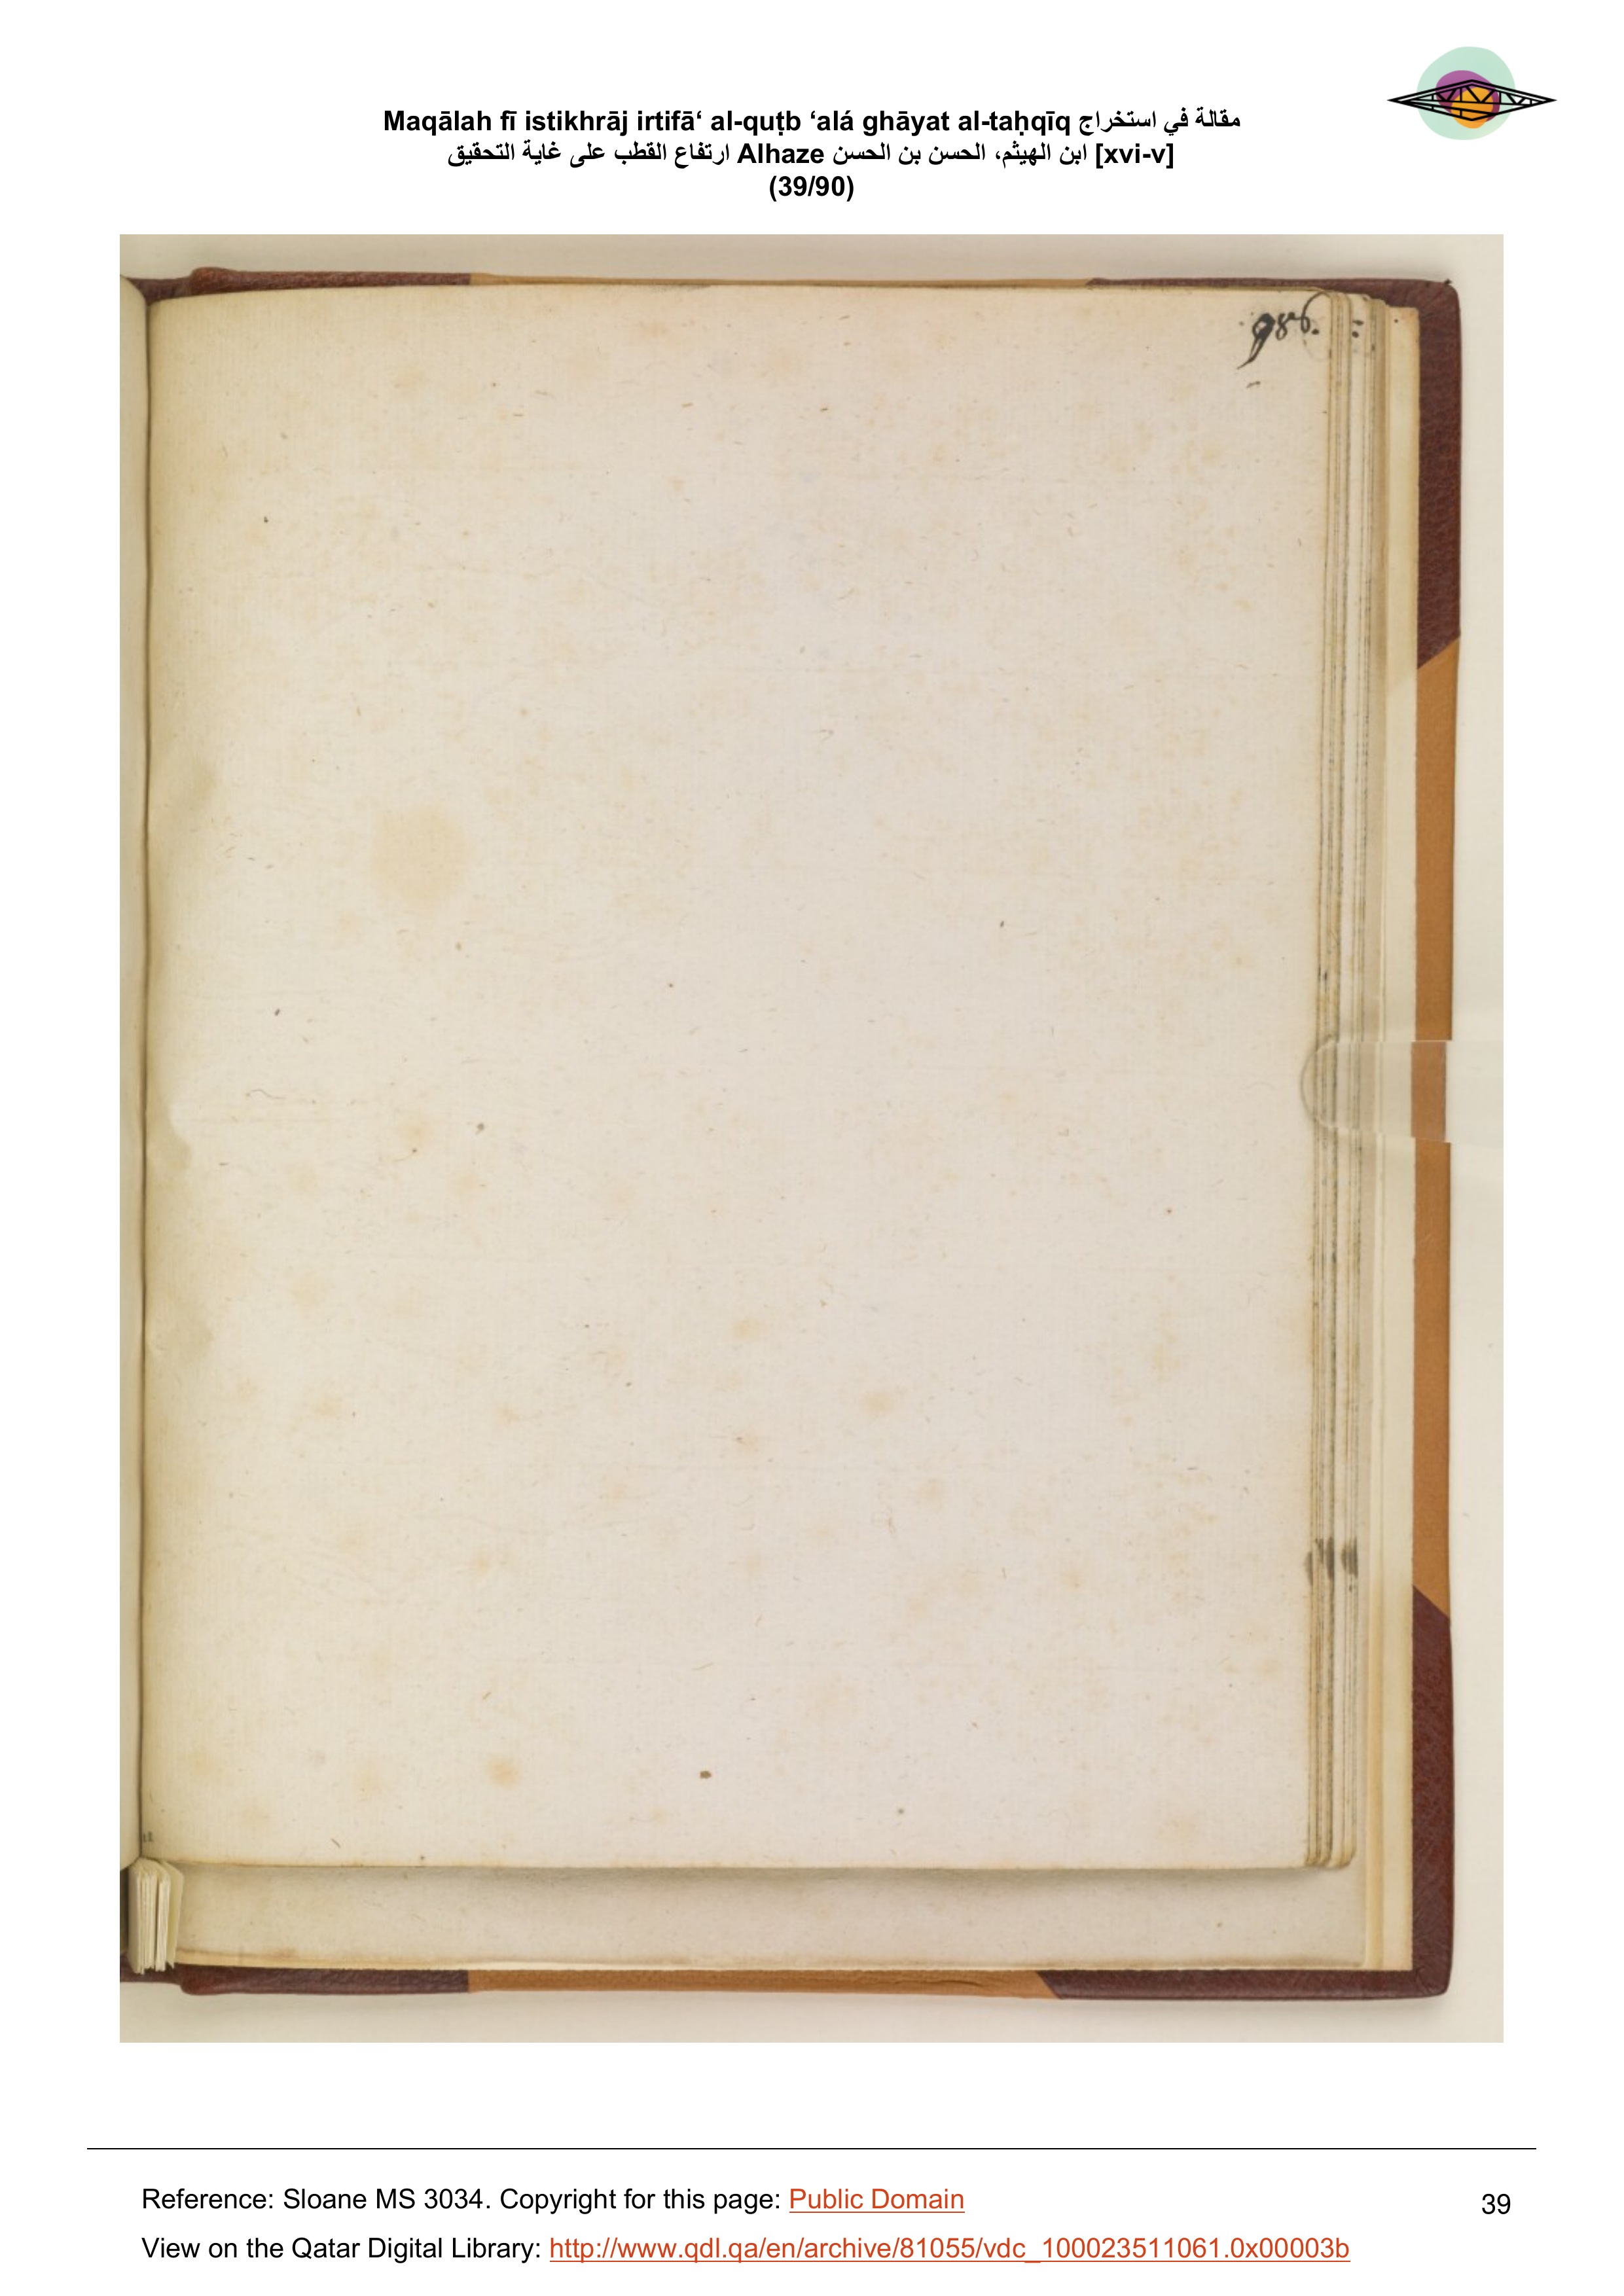 Maqālah fī istikhrāj irtifā‘ al-quṭb ‘alá ghāyat al-taḥqīq مقالة في استخراج
ارتفاع القطب على غاية التحقيق Alhaze ابن الهيثم، الحسن بن الحسن [xvi-v]
(39/90)
986.
Reference: Sloane MS 3034. Copyright for this page: Public Domain
39
View on the Qatar Digital Library: http://www.qdl.qa/en/archive/81055/vdc_100023511061.0x00003b